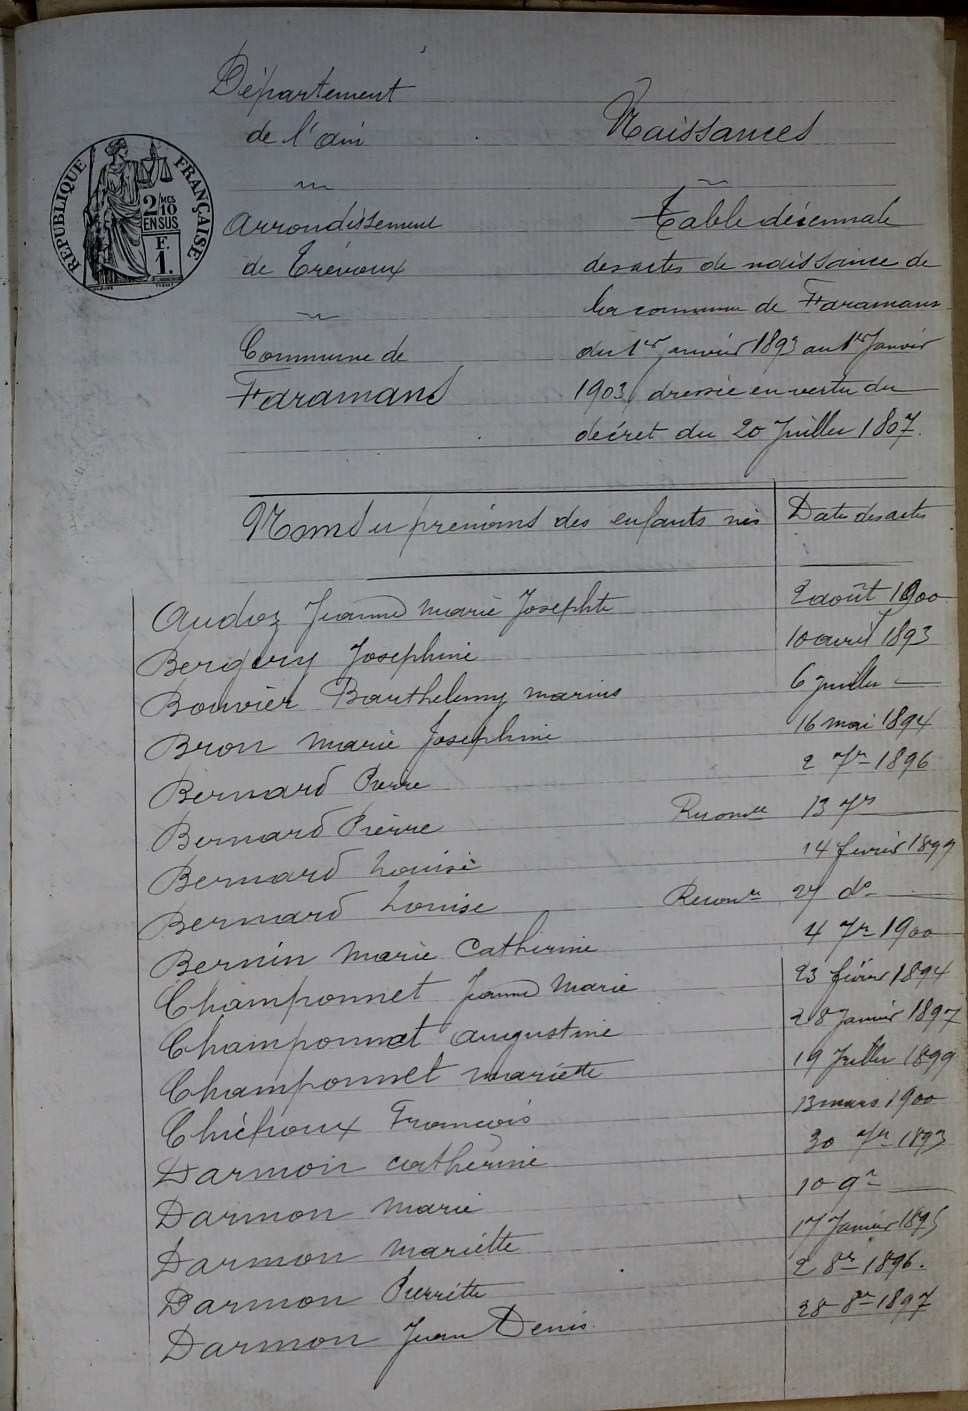 Département
de l'ain
Arrondissement
de Trévoux
Commune de
Faramans
RÉPUBLIQUE FRANÇAISE
2/10
EN SUS
F.
1.
Naissances
Table décennale
des actes de naissance de
la commune de Faramans
du 1er janvier 1893 au 1er Janvier
1903, dressée en vertu du
décret du 20 Juillet 1807.
Noms et prénoms des enfants nés Date des actes
Audoz Jeanne Marie Josephte 2 août 1900
Bergery Josephine 10 avril 1893
Bouvier Barthelemy marius 6 juillet —
Bron Marie Josephine 16 mai 1894
Bernard Pierre 2 7re 1896
Bernard Pierre 13 7re —
Bernard Louise 14 fevrier 1899
Bernard Louise 27 do —
Bernin Marie Catherine 4 7re 1900
Champonnet Jeanne Marie 23 février 1894
Champonnet augustine 28 Janvier 1897
Champonnet mariette 19 Juillet 1899
Chichoux François 13 mars 1900
Darmon catherine 30 7re 1893
Darmon Marie 10 9re —
Darmon Mariette 17 Janvier 1895
Darmon Pierrette 2 8re 1896.
Darmon Jean Denis. 28 8re 1897